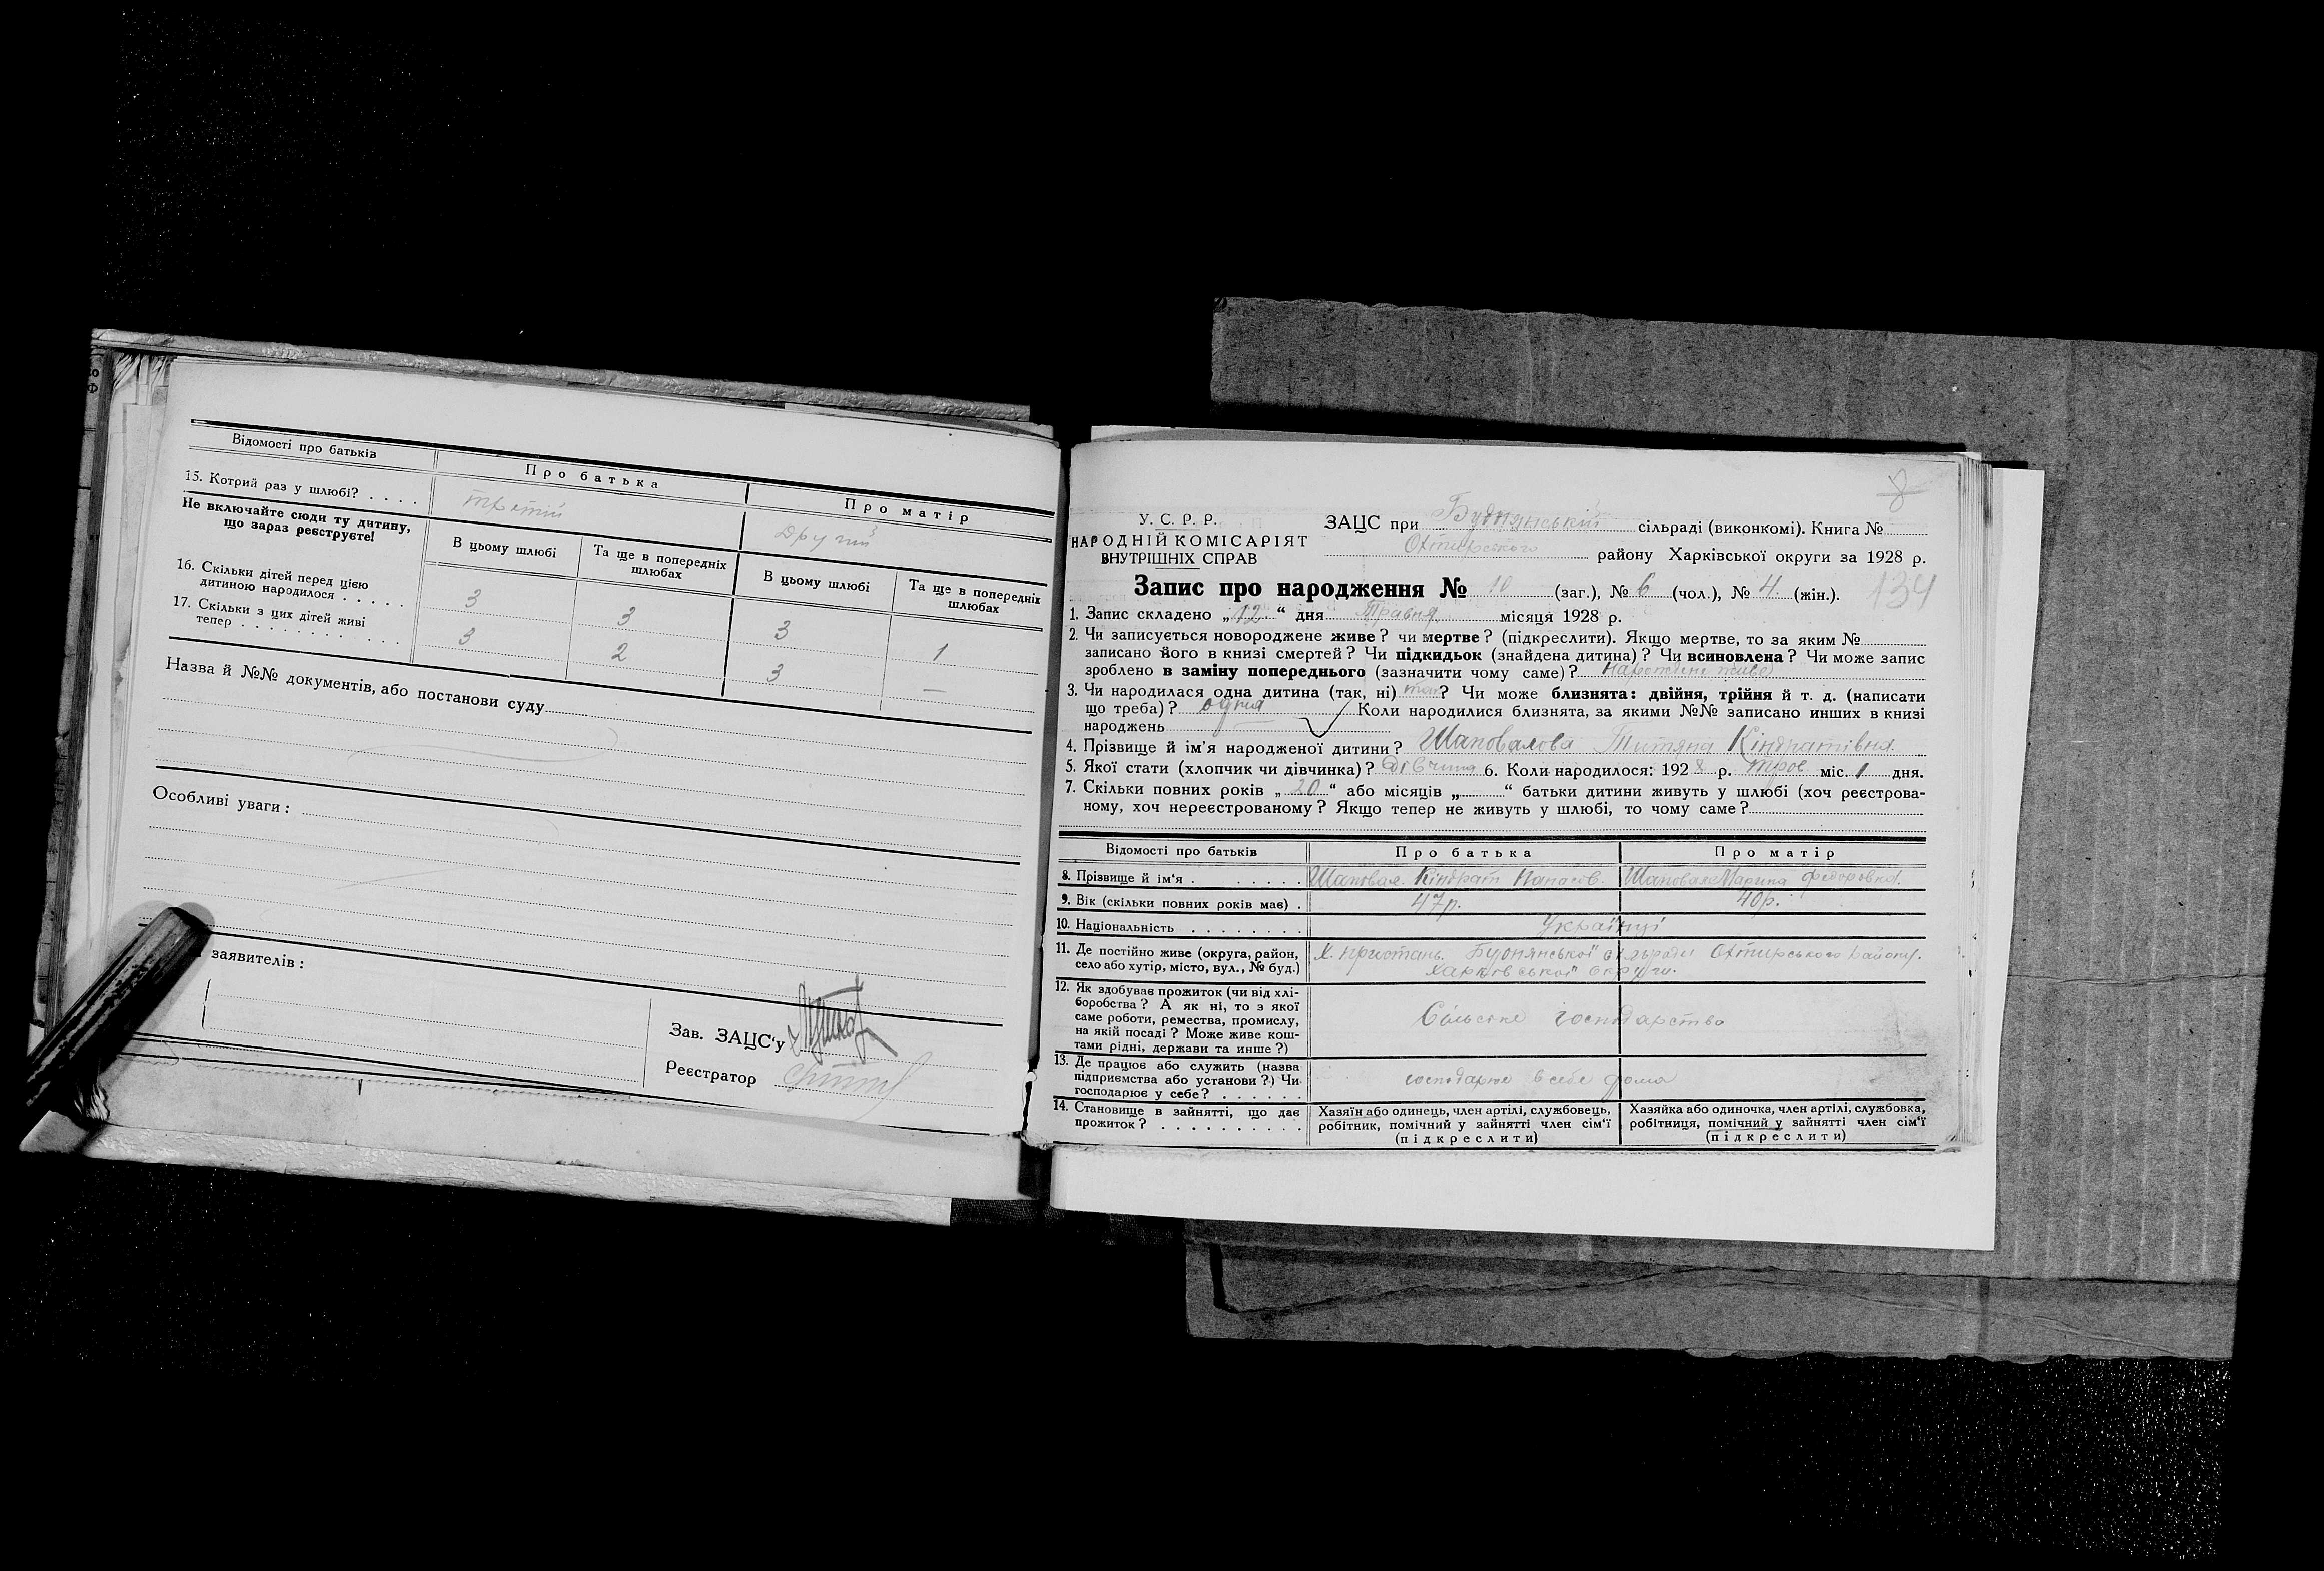 Відомості про батьків
Про батька
Про матір
15. Котрий раз у шлюбі? . . . .
третій
Другий
Не включайте сюди ту дитину,
що зараз реєструєте!
В цьому шлюбі
Та ще в попередніх
шлюбах
В цьому шлюбі
Та ще в попередніх
шлюбах
16. Скільки дітей перед цією
дитиною народилося . . . . .
3
3
3
1
17. Скільки з цих дітей живі
тепер . . . . . . . . . . . .
3
2
3
—
Назва й №№ документів, або постанови суду
Особливі уваги:
заявителів:
Зав. ЗАЦС'у
Реєстратор
8
У. С. Р. Р.
НАРОДНІЙ КОМІСАРІЯТ
ВНУТРІШНІХ СПРАВ
ЗАЦС при Буднянській сільраді (виконкомі). Книга №
Охтирського району Харківської округи за 1928 р.
Запис про народження № 10 (заг.), № 6 (чол.), № 4 (жін.).
134
1. Запис складено „12“ дня Травня місяця 1928 р.
2. Чи записується новороджене живе? чи мертве? (підкреслити). Якщо мертве, то за яким №
записано його в книзі смертей? Чи підкидьок (знайдена дитина)? Чи всиновлена? Чи може запис
зроблено в заміну попереднього (зазначити чому саме)? Народжене живе
3. Чи народилася одна дитина (так, ні) так? Чи може близнята: двійня, трійня й т. д. (написати
що треба)? одна Коли народилися близнята, за якими №№ записано инших в книзі
народжень
4. Прізвище й ім'я народженої дитини? Шаповалова Титяна Кіндратівна
5. Якої стати (хлопчик чи дівчинка)? Дівчина 6. Коли народилося: 1928 р. трав міс. 1 дня.
7. Скільки повних років „20“ або місяців „ “ батьки дитини живуть у шлюбі (хоч реєстрова-
ному, хоч нереєстрованому? Якщо тепер не живуть у шлюбі, то чому саме?
Відомості про батьків
Про батька
Про матір
8. Прізвище й ім'я . . . . . . .
Шаповал. Кіндрат Панасов.
Шаповал Марина Федоровна.
9. Вік (скільки повних років має) .
47р.
40р.
10. Національність . . . . . . . .
Українці
11. Де постійно живе (округа, район,
село або хутір, місто, вул., № буд.)
Х. пристань Буднянської сільради Охтирського району.
Харківської округи.
12. Як здобуває прожиток (чи від хлі-
боробства? А як ні, то з якої
саме роботи, ремества, промислу,
на якій посаді? Може живе кош-
тами рідні, держави та инше?)
Сільське господарство
13. Де працює або служить (назва
підприємства або установи?) Чи
господарює у себе? . . . . . .
господарює в себе дома
14. Становище в зайнятті, що дає
прожиток? . . . . . . . . . .
Хазяїн або одинець, член артілі, службовець,
робітник, помічний у зайнятті член сім'ї
(підкреслити)
Хазяйка або одиночка, член артілі, службовка,
робітниця, помічний у зайнятті член сім'ї
(підкреслити)